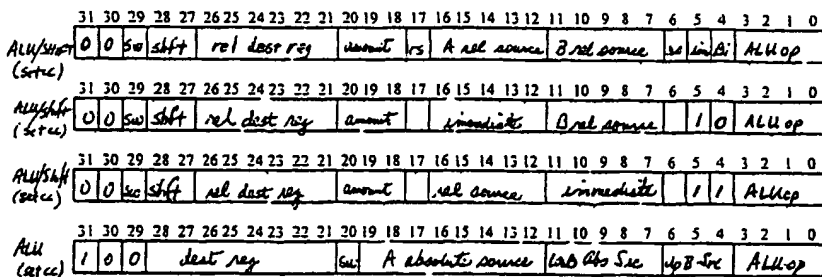 31 30 29 28 27 26 25 24 23 22 21 20 19 18 17 16 15 14 13 12 11 10 9 8 7 6 5 4 3 2 1 0
ALU/SHIFT 0 0 sw shft rel dest reg amount rs A rel source B rel source in Bi ALU op
(setcc)
31 30 29 28 27 26 25 24 23 22 21 20 19 18 17 16 15 14 13 12 11 10 9 8 7 6 5 4 3 2 1 0
ALU/Shift 0 0 sw shft rel dest reg amount immediate B rel source 1 0 ALU op
(setcc)
31 30 29 28 27 26 25 24 23 22 21 20 19 18 17 16 15 14 13 12 11 10 9 8 7 6 5 4 3 2 1 0
ALU/Shift 0 0 shft rel dest reg amount rel source immediate 1 1 ALU op
(setcc)
31 30 29 28 27 26 25 24 23 22 21 20 19 18 17 16 15 14 13 12 11 10 9 8 7 6 5 4 3 2 1 0
ALU 1 0 0 dest reg A absolute source B Abs Src B Src ALU op
(setcc)